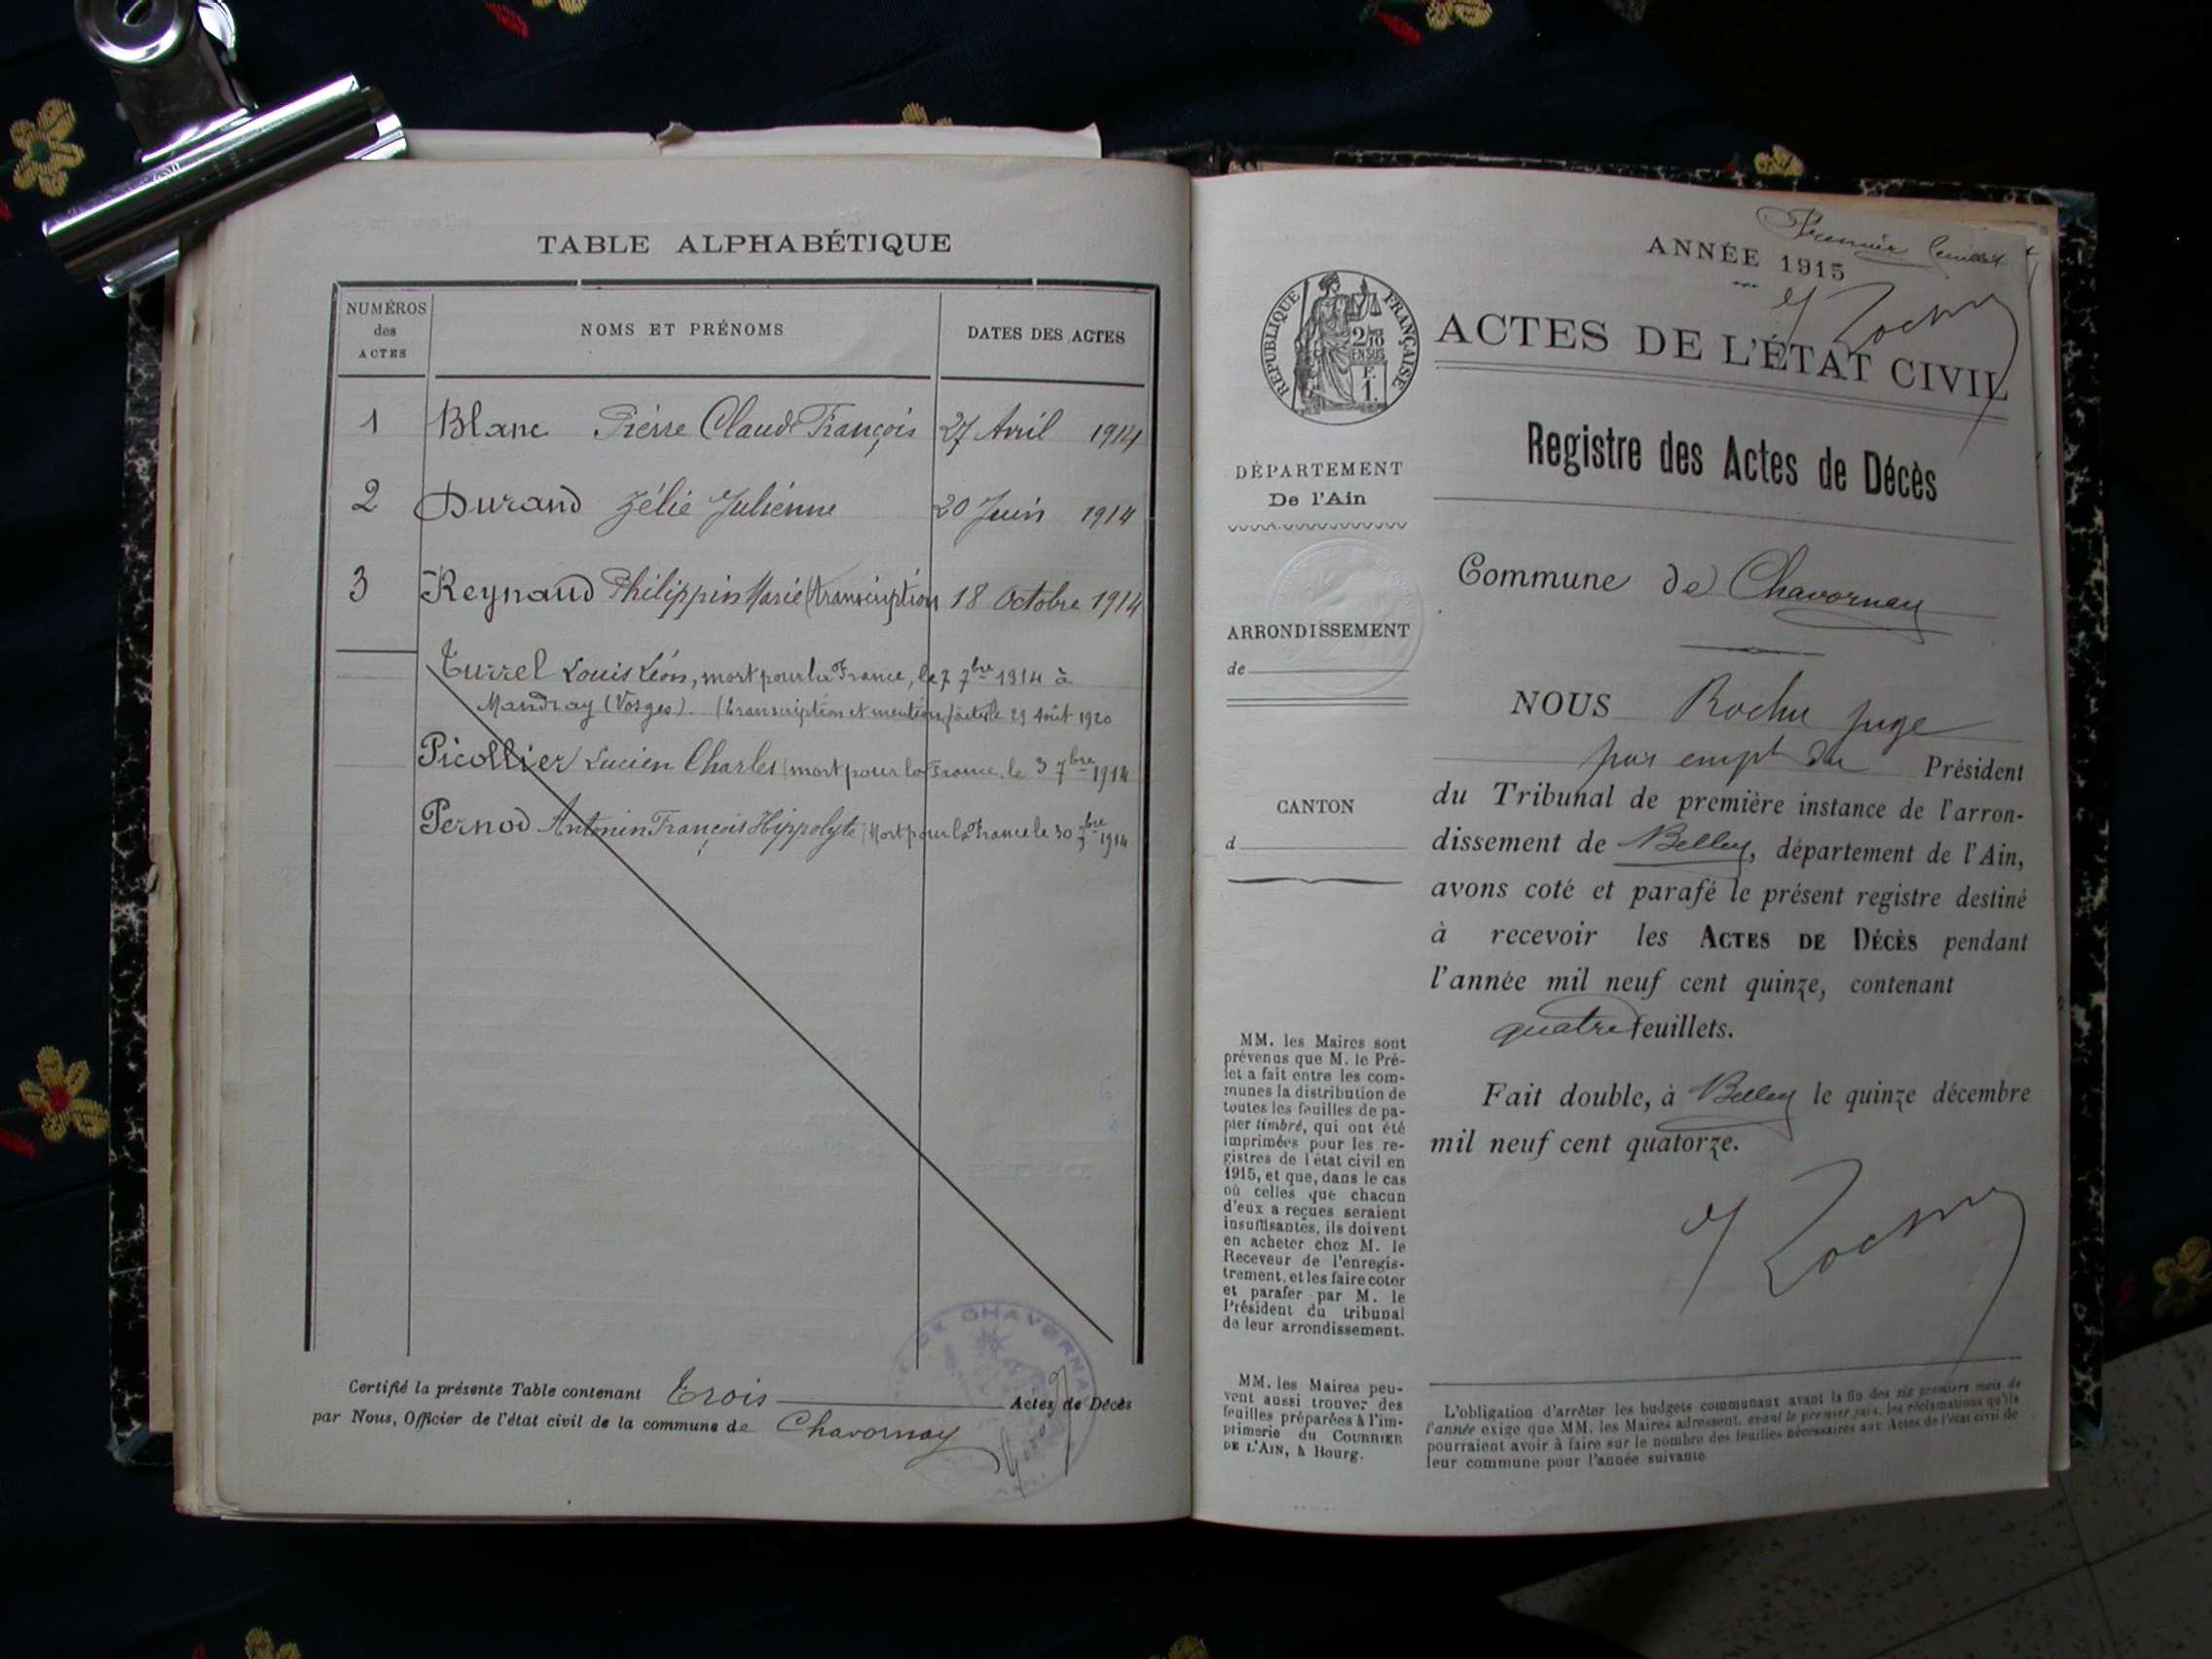 TABLE ALPHABÉTIQUE
NUMÉROS
des
ACTES
NOMS ET PRÉNOMS
DATES DES ACTES
1 Blanc Pierre Claude François 27 Avril 1914
2 Durand Zélie Julienne 20 Juin 1914
3 Reynaud Philippin Marie (transcription 18 Octobre 1914
Turrel Louis Léon, mort pour la France, le 7 7bre 1914 à
Mandray (Vosges). (transcription et mention faites le 29 Août 1920
Picollier Lucien Charles (mort pour la France, le 3 7bre 1914
Pernod Antonin François Hippolyte (Mort pour la France le 30 7bre 1914
Certifié la présente Table contenant trois Actes de Décès
par Nous, Officier de l'état civil de la commune de Chavornay
DE CHAVORNA
Premier feuillet
ANNÉE 1915
RÉPUBLIQUE FRANÇAISE
2/10
EN SUS
F.
1.
ACTES DE L'ÉTAT CIVIL
Registre des Actes de Décès
DÉPARTEMENT
De l'Ain
Commune de Chavornay
ARRONDISSEMENT
de
NOUS Rochu juge
par empt du Président
du Tribunal de première instance de l'arron-
dissement de Belley, département de l'Ain,
avons coté et parafé le présent registre destiné
à recevoir les ACTES DE DÉCÈS pendant
l'année mil neuf cent quinze, contenant
quatre feuillets.
Fait double, à Belley le quinze décembre
mil neuf cent quatorze.
CANTON
d
MM. les Maires sont
prévenus que M. le Pré-
fet a fait entre les com-
munes la distribution de
toutes les feuilles de pa-
pier timbré, qui ont été
imprimées pour les re-
gistres de l'état civil en
1915, et que, dans le cas
où celles que chacun
d'eux a reçues seraient
insuffisantes, ils doivent
en acheter chez M. le
Receveur de l'enregis-
trement, et les faire coter
et parafer par M. le
Président du tribunal
de leur arrondissement.
MM. les Maires peu-
vent aussi trouver des
feuilles préparées à l'im-
primerie du COURRIER
DE L'AIN, à Bourg.
L'obligation d'arrêter les budgets communaux avant la fin des six premiers mois de
l'année exige que MM. les Maires adressent, avant le premier juin, les réclamations qu'ils
pourraient avoir à faire sur le nombre des feuilles nécessaires aux Actes de l'état civil de
leur commune pour l'année suivante